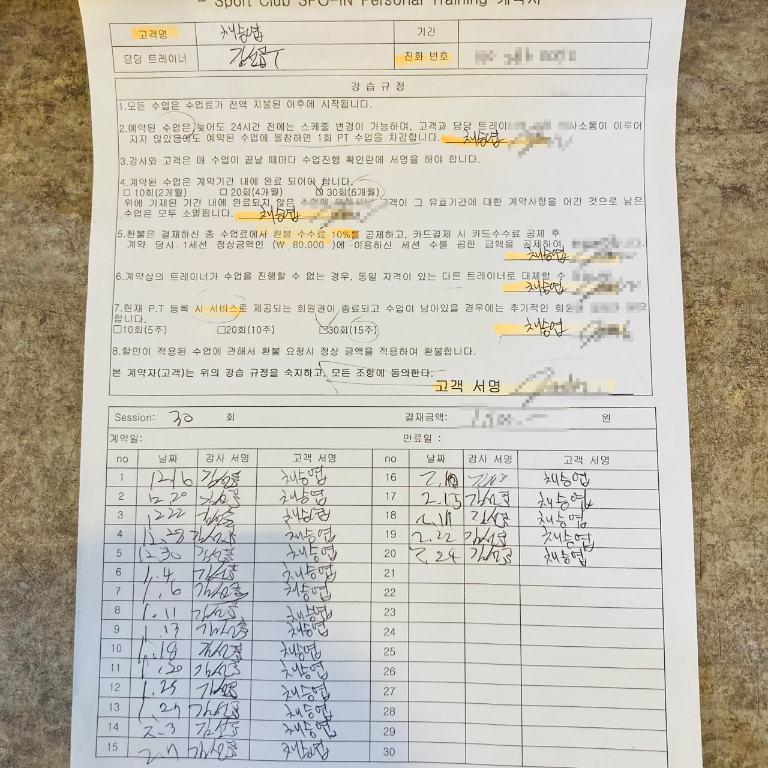 - Sport Club SPO-IN Personal Training 계약서
고객명 채승엽 기간
담당 트레이너 전화 번호
강습규정
1.모든 수업은 수업료가 전액 지불된 이후에 시작됩니다.
2.예약된 수업은 늦어도 24시간 전에는 스케줄 변경이 가능하며, 고객과 담당 트레이 사소통이 이루어
지지 않았음에도 예약된 수업에 불참하면 1회 PT 수업을 차감합니다. 채승엽
3.강사와 고객은 매 수업이 끝날 때마다 수업진행 확인란에 서명을 해야 합니다.
4.계약된 수업은 계약기간 내에 완료 되어야 합니다.
□ 10회(2개월) □ 20회(4개월) ☑ 30회(6개월)
위에 기재된 기간 내에 완료되지 않은 고객이 그 유효기간에 대한 계약사항을 어긴 것으로 남은
수업은 모두 소멸됩니다. 채승엽
5.환불은 결재하신 총 수업료에서 환불 수수료 10%를 공제하고, 카드결제 시 카드수수료 공제 후
계약 당시 1세션 정상금액인 (W 80.000 )에 이용하신 세션 수를 곱한 금액을 공제하여 채승엽
6.계약상의 트레이너가 수업을 진행할 수 없는 경우, 동일 자격이 있는 다른 트레이너로 대체할 수 채승엽
7.현재 P.T 등록 시 서비스로 제공되는 회원권이 종료되고 수업이 남아있을 경우에는 추가적인 회원
합니다.
□10회(5주) □20회(10주) ☑30회(15주) 채승엽
8.할인이 적용된 수업에 관해서 환불 요청시 정상 금액을 적용하여 환불합니다.
본 계약자(고객)는 위의 강습 규정을 숙지하고, 모든 조항에 동의한다.
고객 서명
Session: 30 회 결재금액: 원
계약일: 만료일 :
no 날짜 강사 서명 고객 서명 no 날짜 강사 서명 고객 서명
1 12.16 채승엽 16 채승엽
2 12.20 채승엽 17 2.15 채승엽
3 12.22 채승엽 18 채승엽
4 12.28 채승엽 19 2.22 채승엽
5 12.30 채승엽 20 2.24 채승엽
6 1.4 채승엽 21
7 1.6 채승엽 22
8 1.11 채승엽 23
9 1.13 채승엽 24
10 1.18 채승엽 25
11 1.20 채승엽 26
12 1.25 채승엽 27
13 1.27 채승엽 28
14 2.3 채승엽 29
15 2.7 채승엽 30